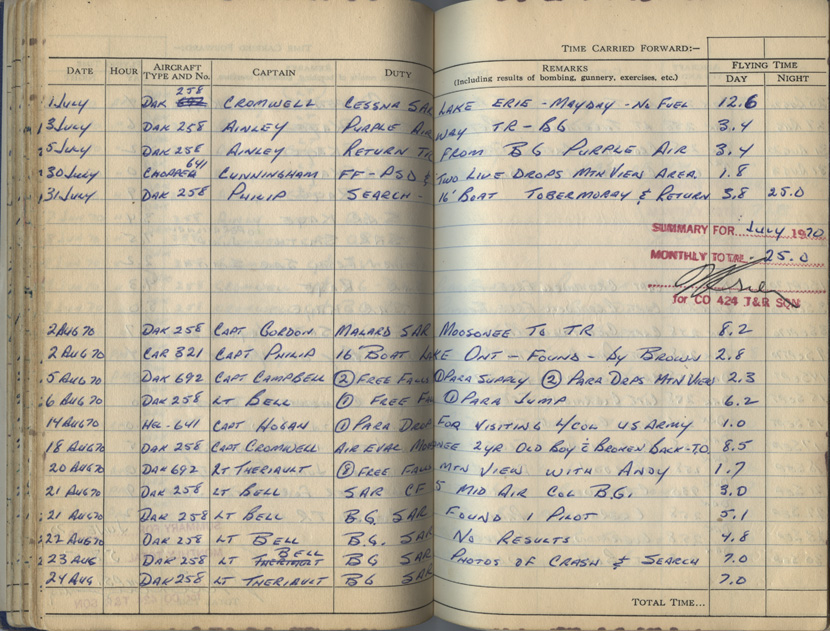 TIME CARRIED FORWARD:—
DATE HOUR AIRCRAFT TYPE AND No. CAPTAIN DUTY REMARKS (Including results of bombing, gunnery, exercises, etc.) FLYING TIME DAY NIGHT
258
1 July DAK 692 CROMWELL CESSNA SAR LAKE ERIE - MAYDAY - No FUEL 12.6
3 July DAK 258 AINLEY PURPLE AIRWAY TR - BG 3.4
5 July DAK 258 AINLEY RETURN TR FROM BG PURPLE AIR 3.4
641
30 July CHOPPER CUNNINGHAM FF-PSD & TWO LIVE DROPS MTN VIEW AREA 1.8
31 July DAK 258 PHILIP SEARCH - 16' BOAT TOBERMORRY & RETURN 3.8 25.0
SUMMARY FOR July 1970
MONTHLY TOTAL - 25.0
for CO 424 T&R SQN
2 AUG 70 DAK 258 CAPT GORDON MALARD SAR MOOSONEE TO TR 8.2
2 AUG 70 CAR 321 CAPT PHILIP 16' BOAT LAKE ONT - FOUND - by BROWN 2.8
5 AUG 70 DAK 692 CAPT CAMPBELL ② FREE FALLS ① PARA SUPPLY ② PARA DRPS MTN VIEW 2.3
6 AUG 70 DAK 258 LT BELL ① FREE FALL ① PARA JUMP 6.2
14 AUG 70 HEL-641 CAPT HOGAN ① PARA DROP FOR VISITING L/COL US ARMY 1.0
18 AUG 70 DAK 258 CAPT CROMWELL AIR EVAC MOOSONEE 2 YR OLD BOY C BROKEN BACK-T.O. 8.5
20 AUG 70 DAK 692 LT THERIAULT FREE FALLS MTN VIEW WITH ANDY 1.7
21 AUG 70 DAK 258 LT BELL SAR CF5 MID AIR COL B.G. 3.0
21 AUG 70 DAK 258 LT BELL BG. SAR FOUND 1 PILOT 5.1
22 AUG 70 DAK 258 LT BELL BG. SAR No RESULTS 4.8
BELL
23 AUG DAK 258 LT THERIAULT BG SAR PHOTOS OF CRASH & SEARCH 7.0
24 AUG. DAK 258 LT THERIAULT BG SAR 7.0
TOTAL TIME...